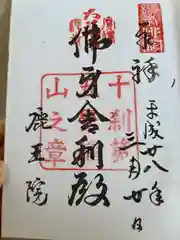 奉拝
平成廿八年
三月廿日
佛牙舎利殿
十刹第
山之章
鹿王院